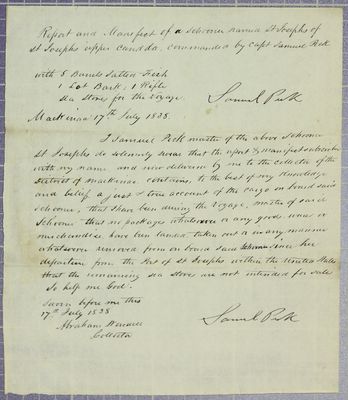 Report and Manifest of a Schooner named St Josephs of
St Josephs upper Canada, commanded by Capt Samuel Peck
with 5 Barrels Salted Fish
1 Lot Bark, 1 Rifle
Sea Store for the Voyage
Samuel Peck
Mackinac 17th July 1838.
I Samuel Peck master of the above Schooner
St Josephs do solemnly swear that the report & manifest subscribed
with my name and now delivered by me to the collector of the
District of Mackinac contains, to the best of my knowledge
and belief, a just & true account of the cargo on board said
schooner, that I have been during the Voyage, master of said
Schooner that no packages whatsoever or any goods wares or
merchandise have been landed taken out or in any manner
whatsoever removed from on board said Schooner since her
departure from the Port of St Josephs within the United States
that the remaining sea stores are not intended for sale
So help me God.
Sworn before me this
17th July 1838
Abraham Wendell
Collector
Samuel Peck